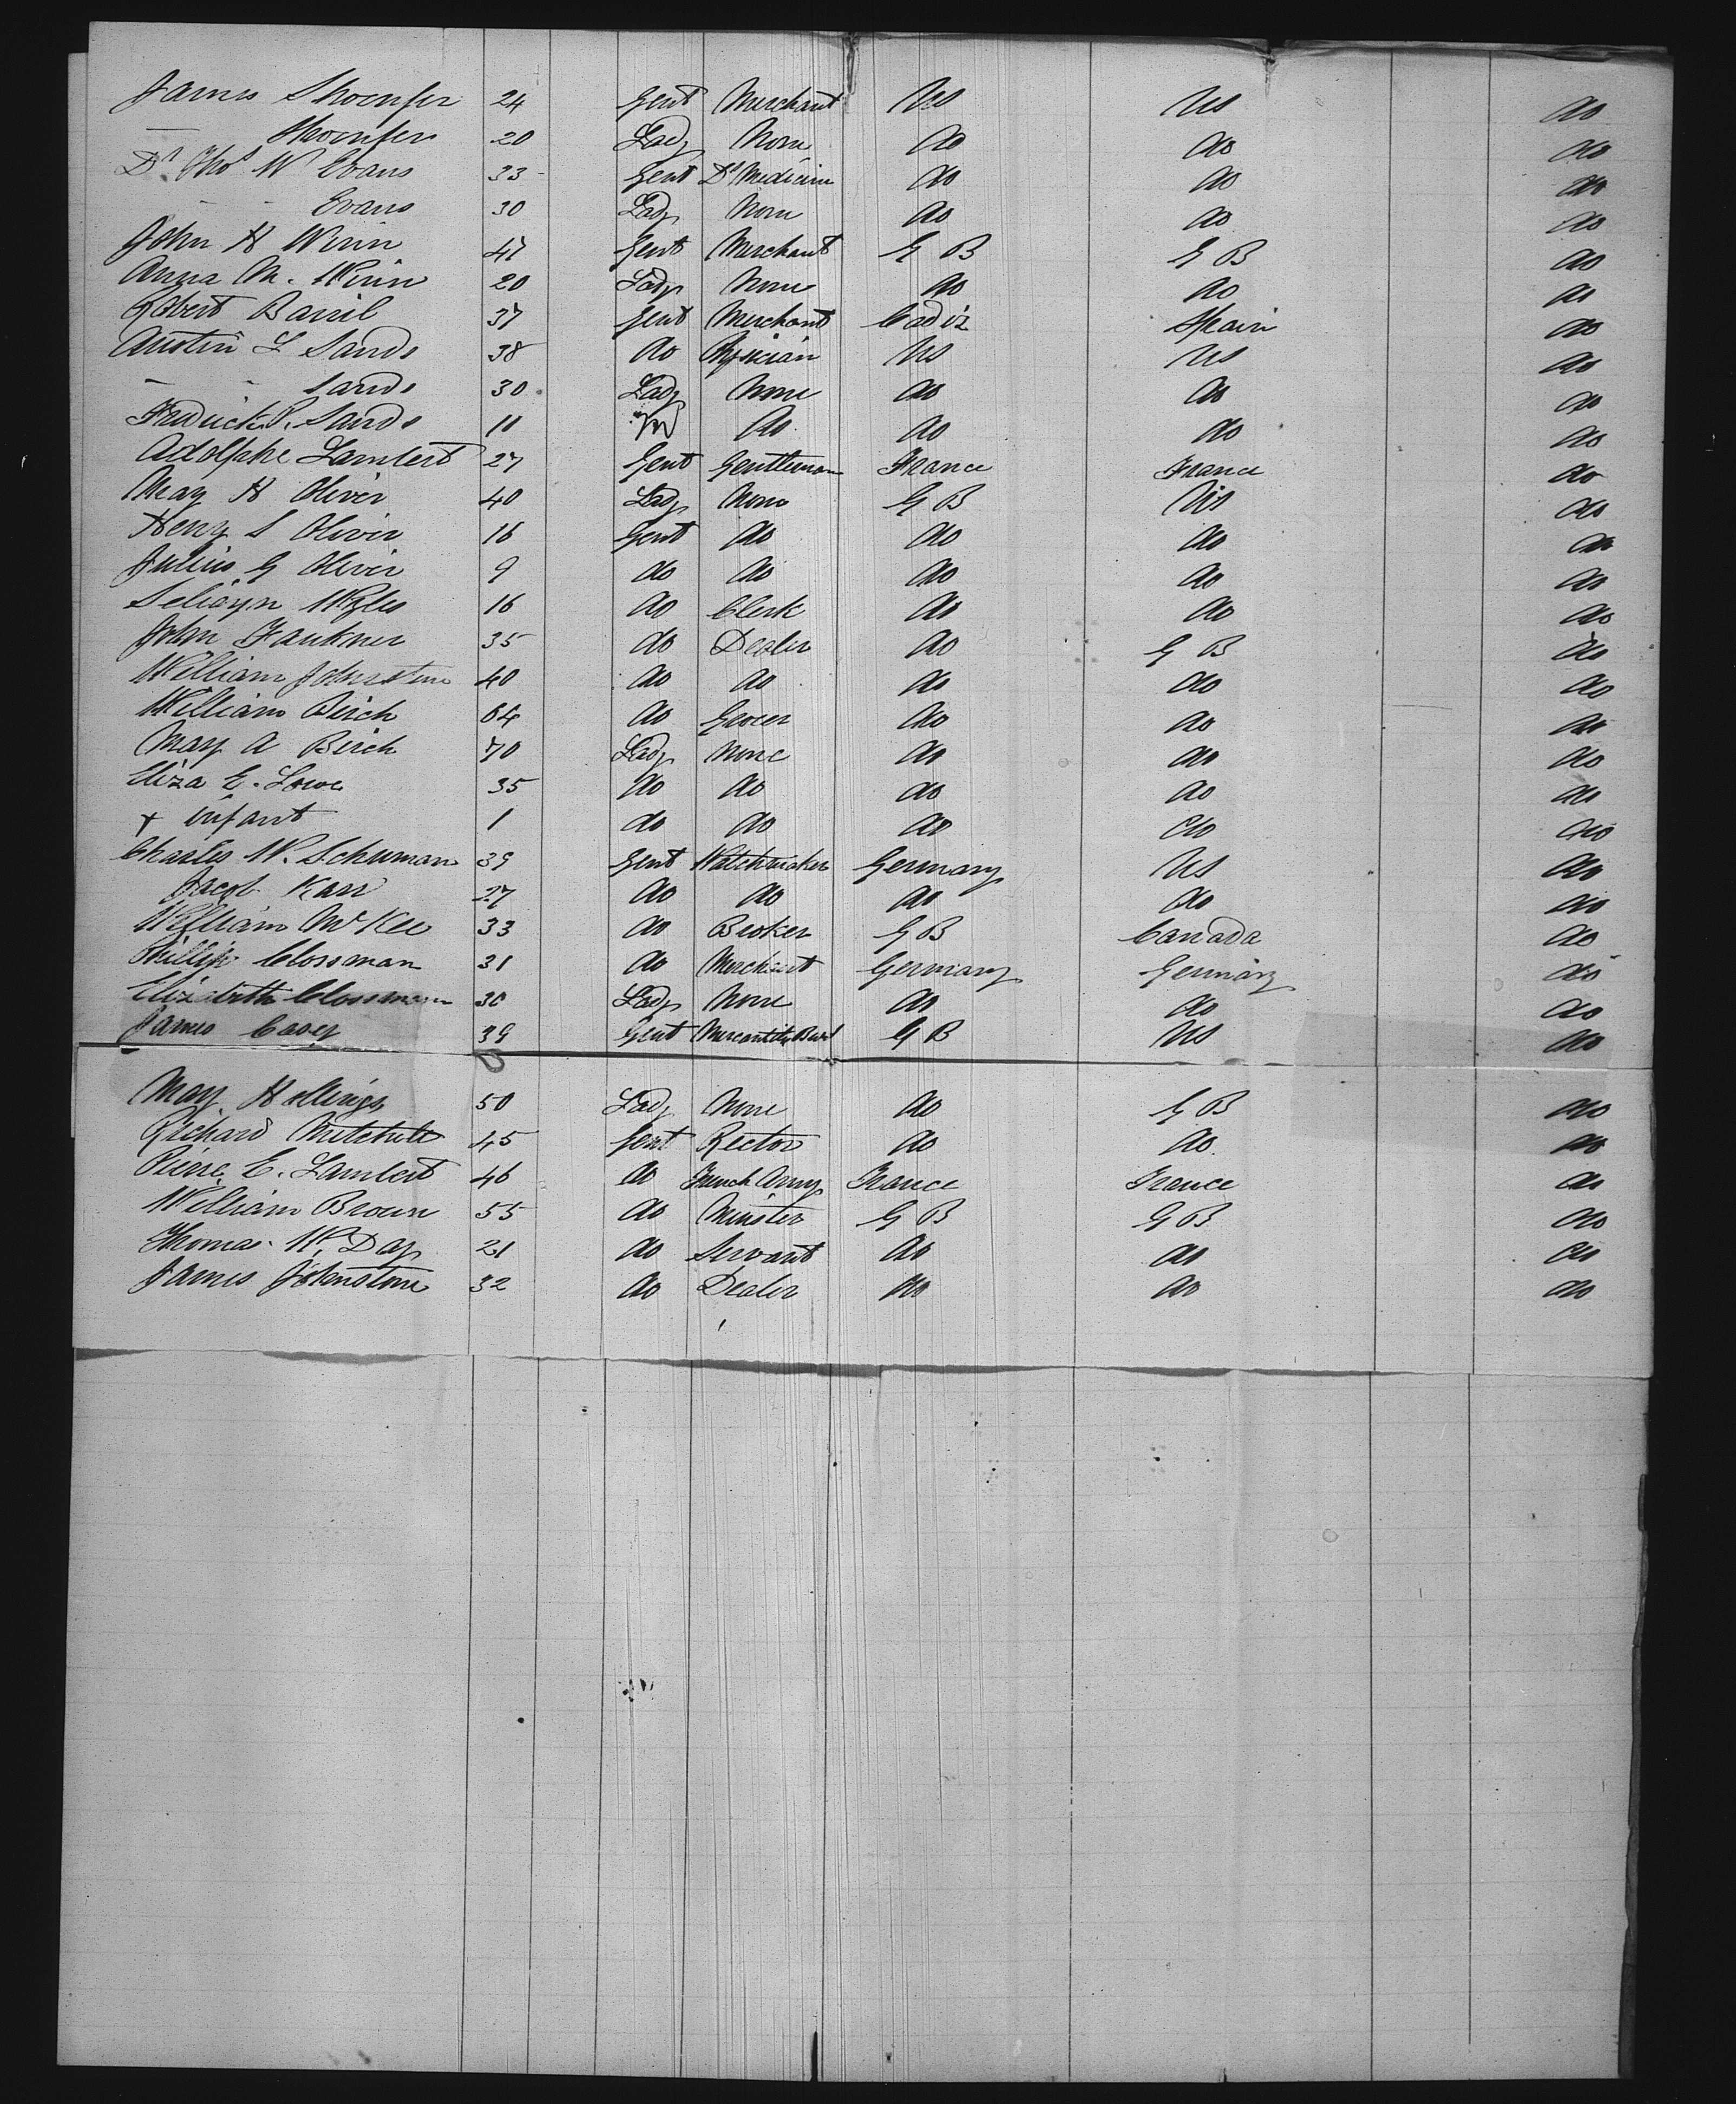 James Shoenfer 24 Gent Merchant US US do
— Shoenfer 20 Lady None do do do
Dr Thos W Evans 33 Gent Dr Medicine do do do
- - Evans 30 Lady None do do do
John H Winn 47 Gent Merchant G B G B do
Anna M. Winn 20 Lady None do do do
Robert Barril 37 Gent Merchant Cadiz Spain do
Austin L Sands 38 do Physician US US do
- - Sands 30 Lady None do do do
Fredrick P. Sands 11 do do do do
Adolphe Lambert 27 Gent Gentleman France France do
Mary H Oliver 40 Lady None G B US do
Henry S Oliver 16 Gent do do do do
Julius G Oliver 9 do do do do do
Selwyn Wyles 16 do Clerk do do do
John Faukner 35 do Dealer do G B do
William Johnstone 40 do do do do do
William Birch 64 do Grocer do do do
Mary A Birch 70 Lady None do do do
Eliza E. Lowe 35 do do do do do
+ infant 1 do do do do do
Charles W. Schuman 39 Gent Watchmaker Germany US do
Jacob Karr 27 do do do do do
William McKee 33 do Broker G B Canada do
Phillip Clossman 31 do Merchant Germany Germany do
Elizabeth Clossman 30 Lady None do do do
James Casey 39 Gent Mercantile G B US do
Mary Hollings 50 Lady None do G B do
Richard Mitchell 45 Gent Rector do do do
Pierre E. Lambert 46 do French Army France France do
William Brown 55 do Minster G B G B do
Thomas W. Day 21 do Servant do do do
James Johnstone 32 do Dealer do do do